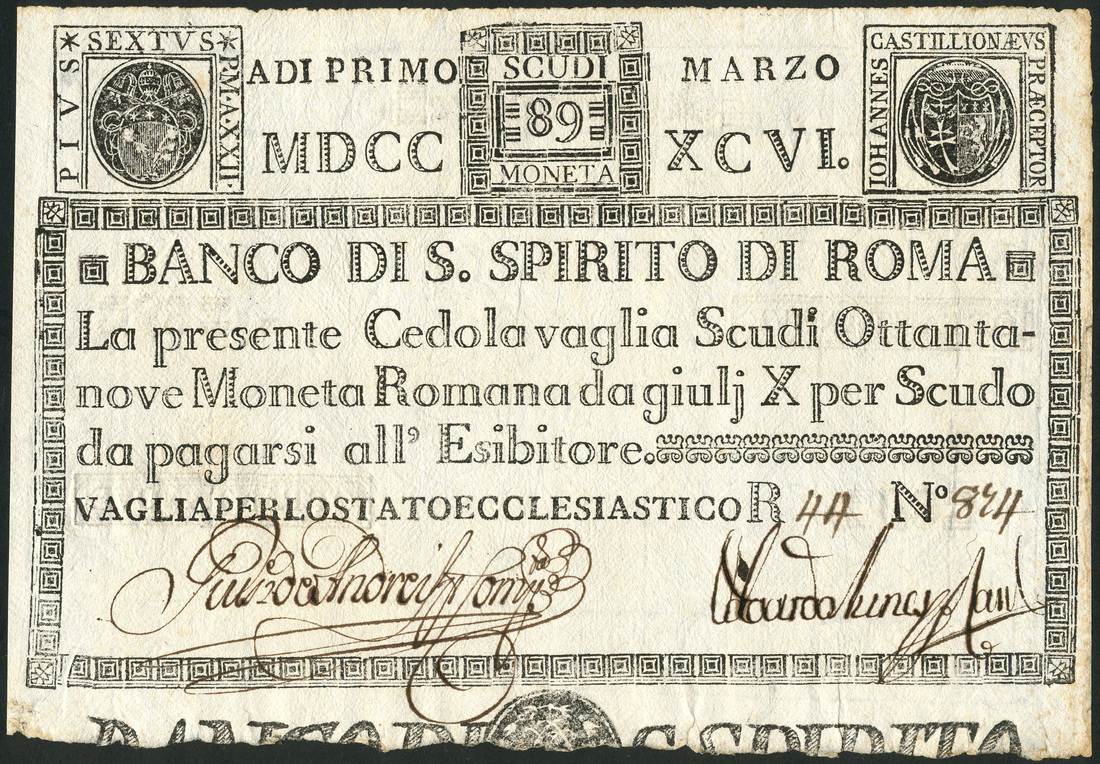 PIVS SEXTVS P.M.A.XXII.
ADI PRIMO MARZO
MDCC XCVI.
SCUDI
89
MONETA
IOHANNES CASTILLIONÆVS PRÆCEPTOR
BANCO DI S. SPIRITO DI ROMA
La presente Cedola vaglia Scudi Ottanta-
nove Moneta Romana da giulj X per Scudo
da pagarsi all' Esibitore.
VAGLIA PER LO STATO ECCLESIASTICO R 44 Nº 824
BANCO DI S. SPIRITO